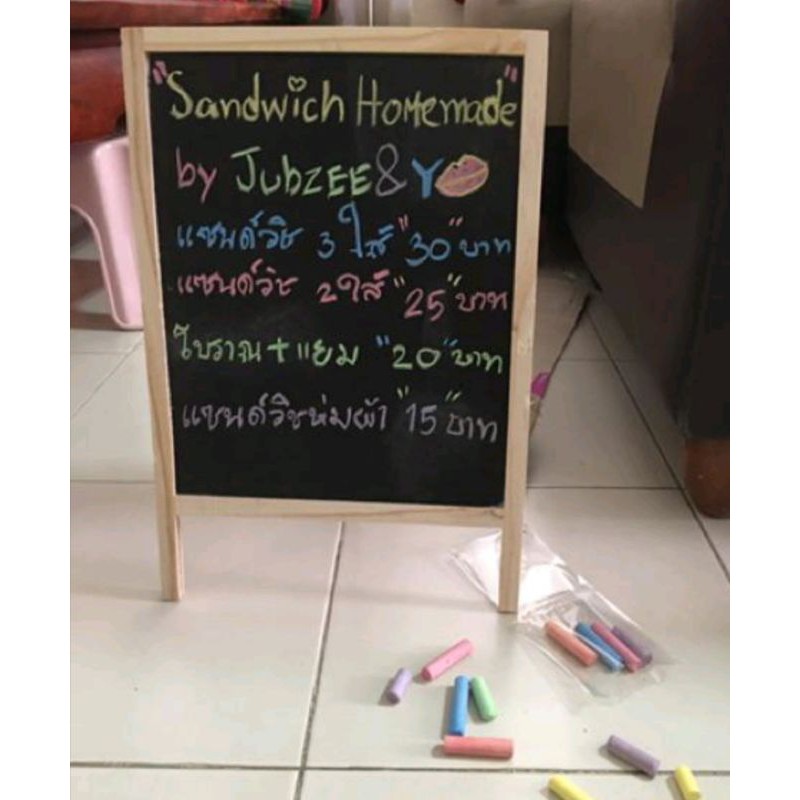 "Sandwich Homemade"
by JubZEE & Y
แซนด์วิช 3 ไส้ "30" บาท
แซนด์วิช 2 ไส้ "25" บาท
โบราณ + แยม "20" บาท
แซนด์วิชห่มผ้า "15" บาท